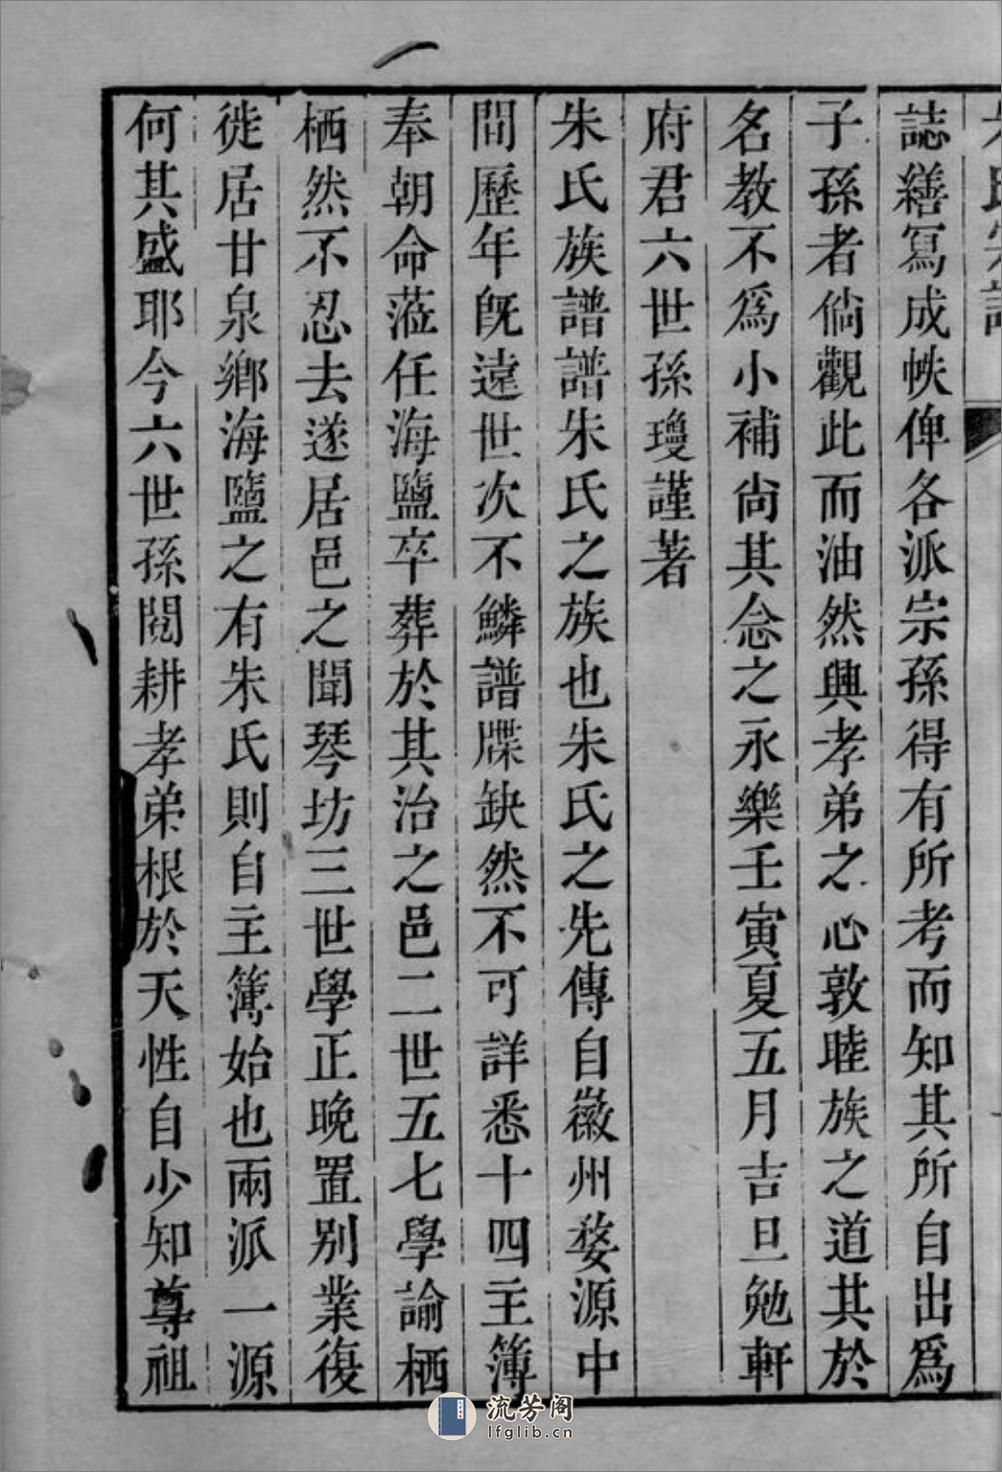 誌繕寫成帙俾各派宗孫得有所考而知其所自出爲
子孫者倘觀此而油然興孝弟之心敦睦族之道其於
名教不爲小補尙其念之永樂壬寅夏五月吉旦勉軒
府君六世孫瓊謹著
朱氏族譜譜朱氏之族也朱氏之先傳自徽州婺源中
間歷年旣遠世次不鱗譜牒缺然不可詳悉十四主簿
奉朝命蒞任海鹽卒葬於其治之邑二世五七學諭栖
栖然不忍去遂居邑之聞琴坊三世學正晚置別業復
徙居甘泉鄉海鹽之有朱氏則自主簿始也兩派一源
何其盛耶今六世孫閱耕孝弟根於天性自少知尊祖
流芳阁
lfglib.cn